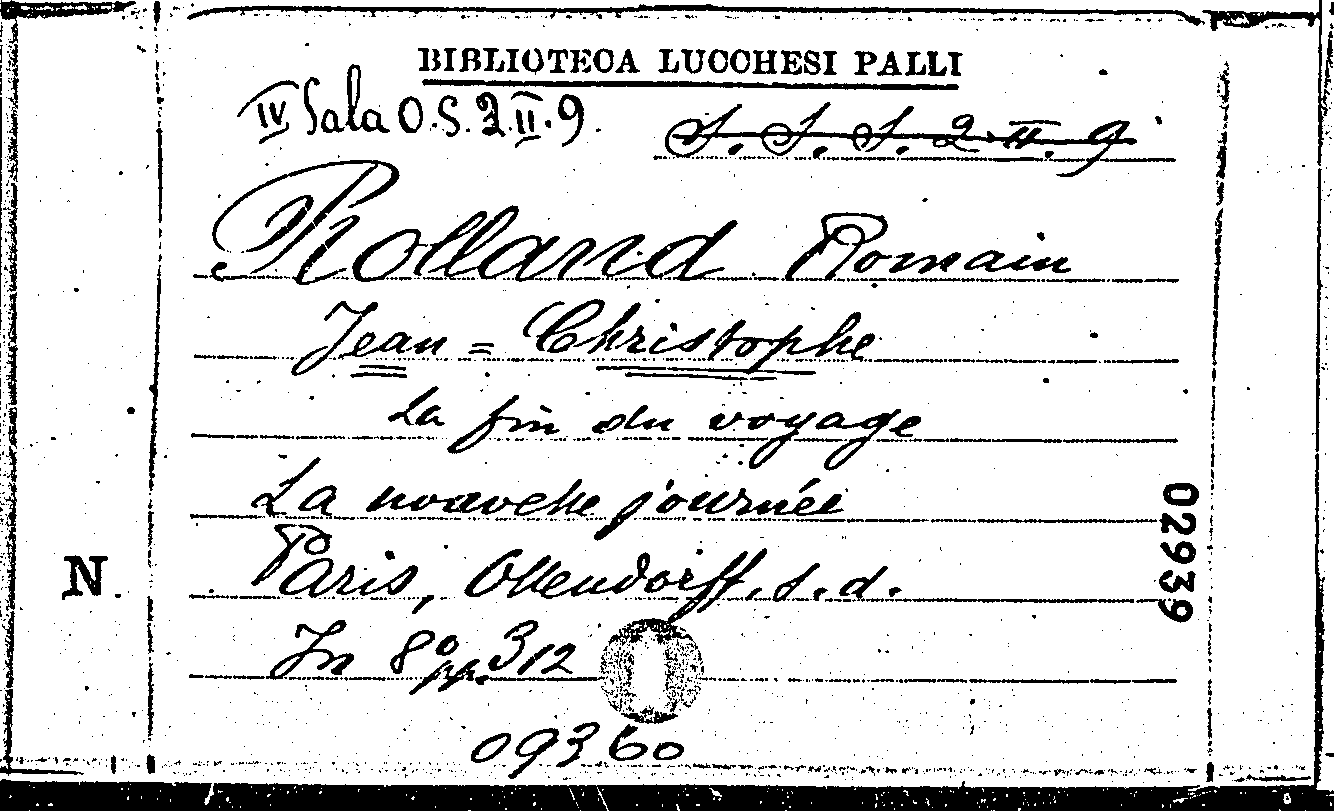 BIBLIOTECA LUCCHESI PALLI
IV Sala O.S. 2.II.9.
S. S. S. 2 II. 9
Rolland Romain
Jean = Christophe
La fin du voyage
La nouvelle journée
Paris, Ollendorff, s. d.
In 8° pp. 312
09360
N.
02939